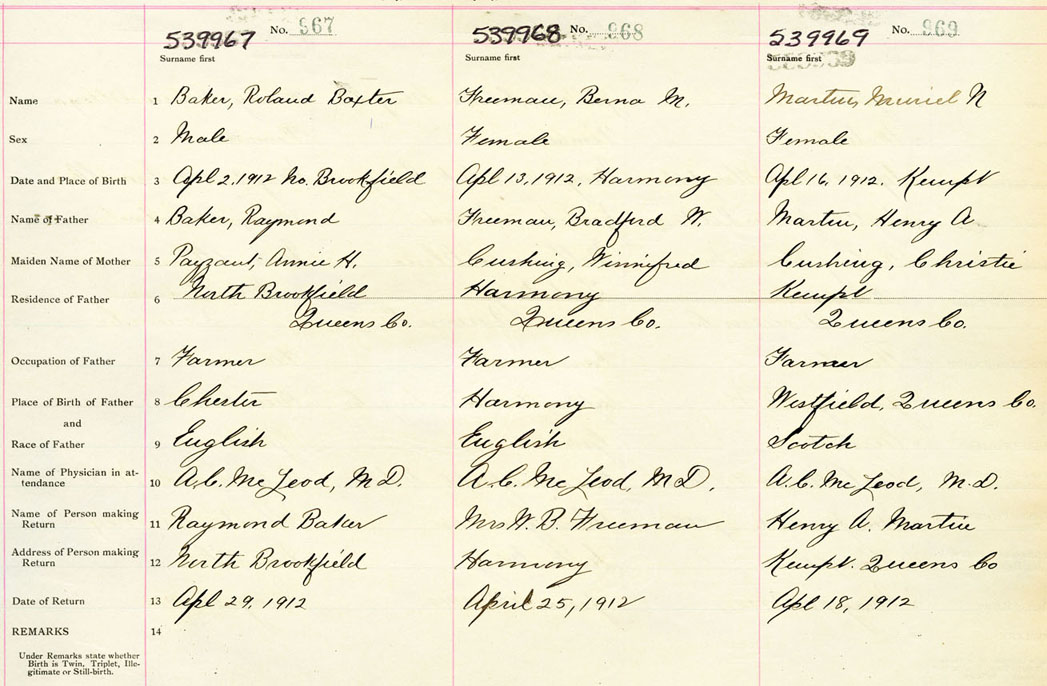 No. 967 No. 968 No. 969
539967 539968 539969
Surname first Surname first Surname first
Name 1 Baker, Roland Baxter Freeman, Berna M. Martin, Muriel N
Sex 2 Male Female Female
Date and Place of Birth 3 Apl 2, 1912 No. Brookfield Apl 13, 1912, Harmony Apl 16, 1912. Kempt
Name of Father 4 Baker, Raymond Freeman, Bradford W. Martin, Henry A
Maiden Name of Mother 5 Payzant, Annie H. Cushing, Winnifred Cushing, Christie
Residence of Father 6 North Brookfield Harmony Kempt
Queens Co. Queens Co. Queens Co.
Occupation of Father 7 Farmer Farmer Farmer
Place of Birth of Father 8 Chester Harmony Westfield, Queens Co.
and
Race of Father 9 English English Scotch
Name of Physician in at-
tendance 10 A.C. McLeod, M D. A.C. McLeod, M D. A.C. McLeod, M.D.
Name of Person making
Return 11 Raymond Baker Mrs W. B. Freeman Henry A. Martin
Address of Person making
Return 12 North Brookfield Harmony Kempt. Queens Co
Date of Return 13 Apl 29, 1912 April 25, 1912 Apl 18, 1912
REMARKS 14
Under Remarks state whether
Birth is Twin, Triplet, Ille-
gitimate or Still-birth.